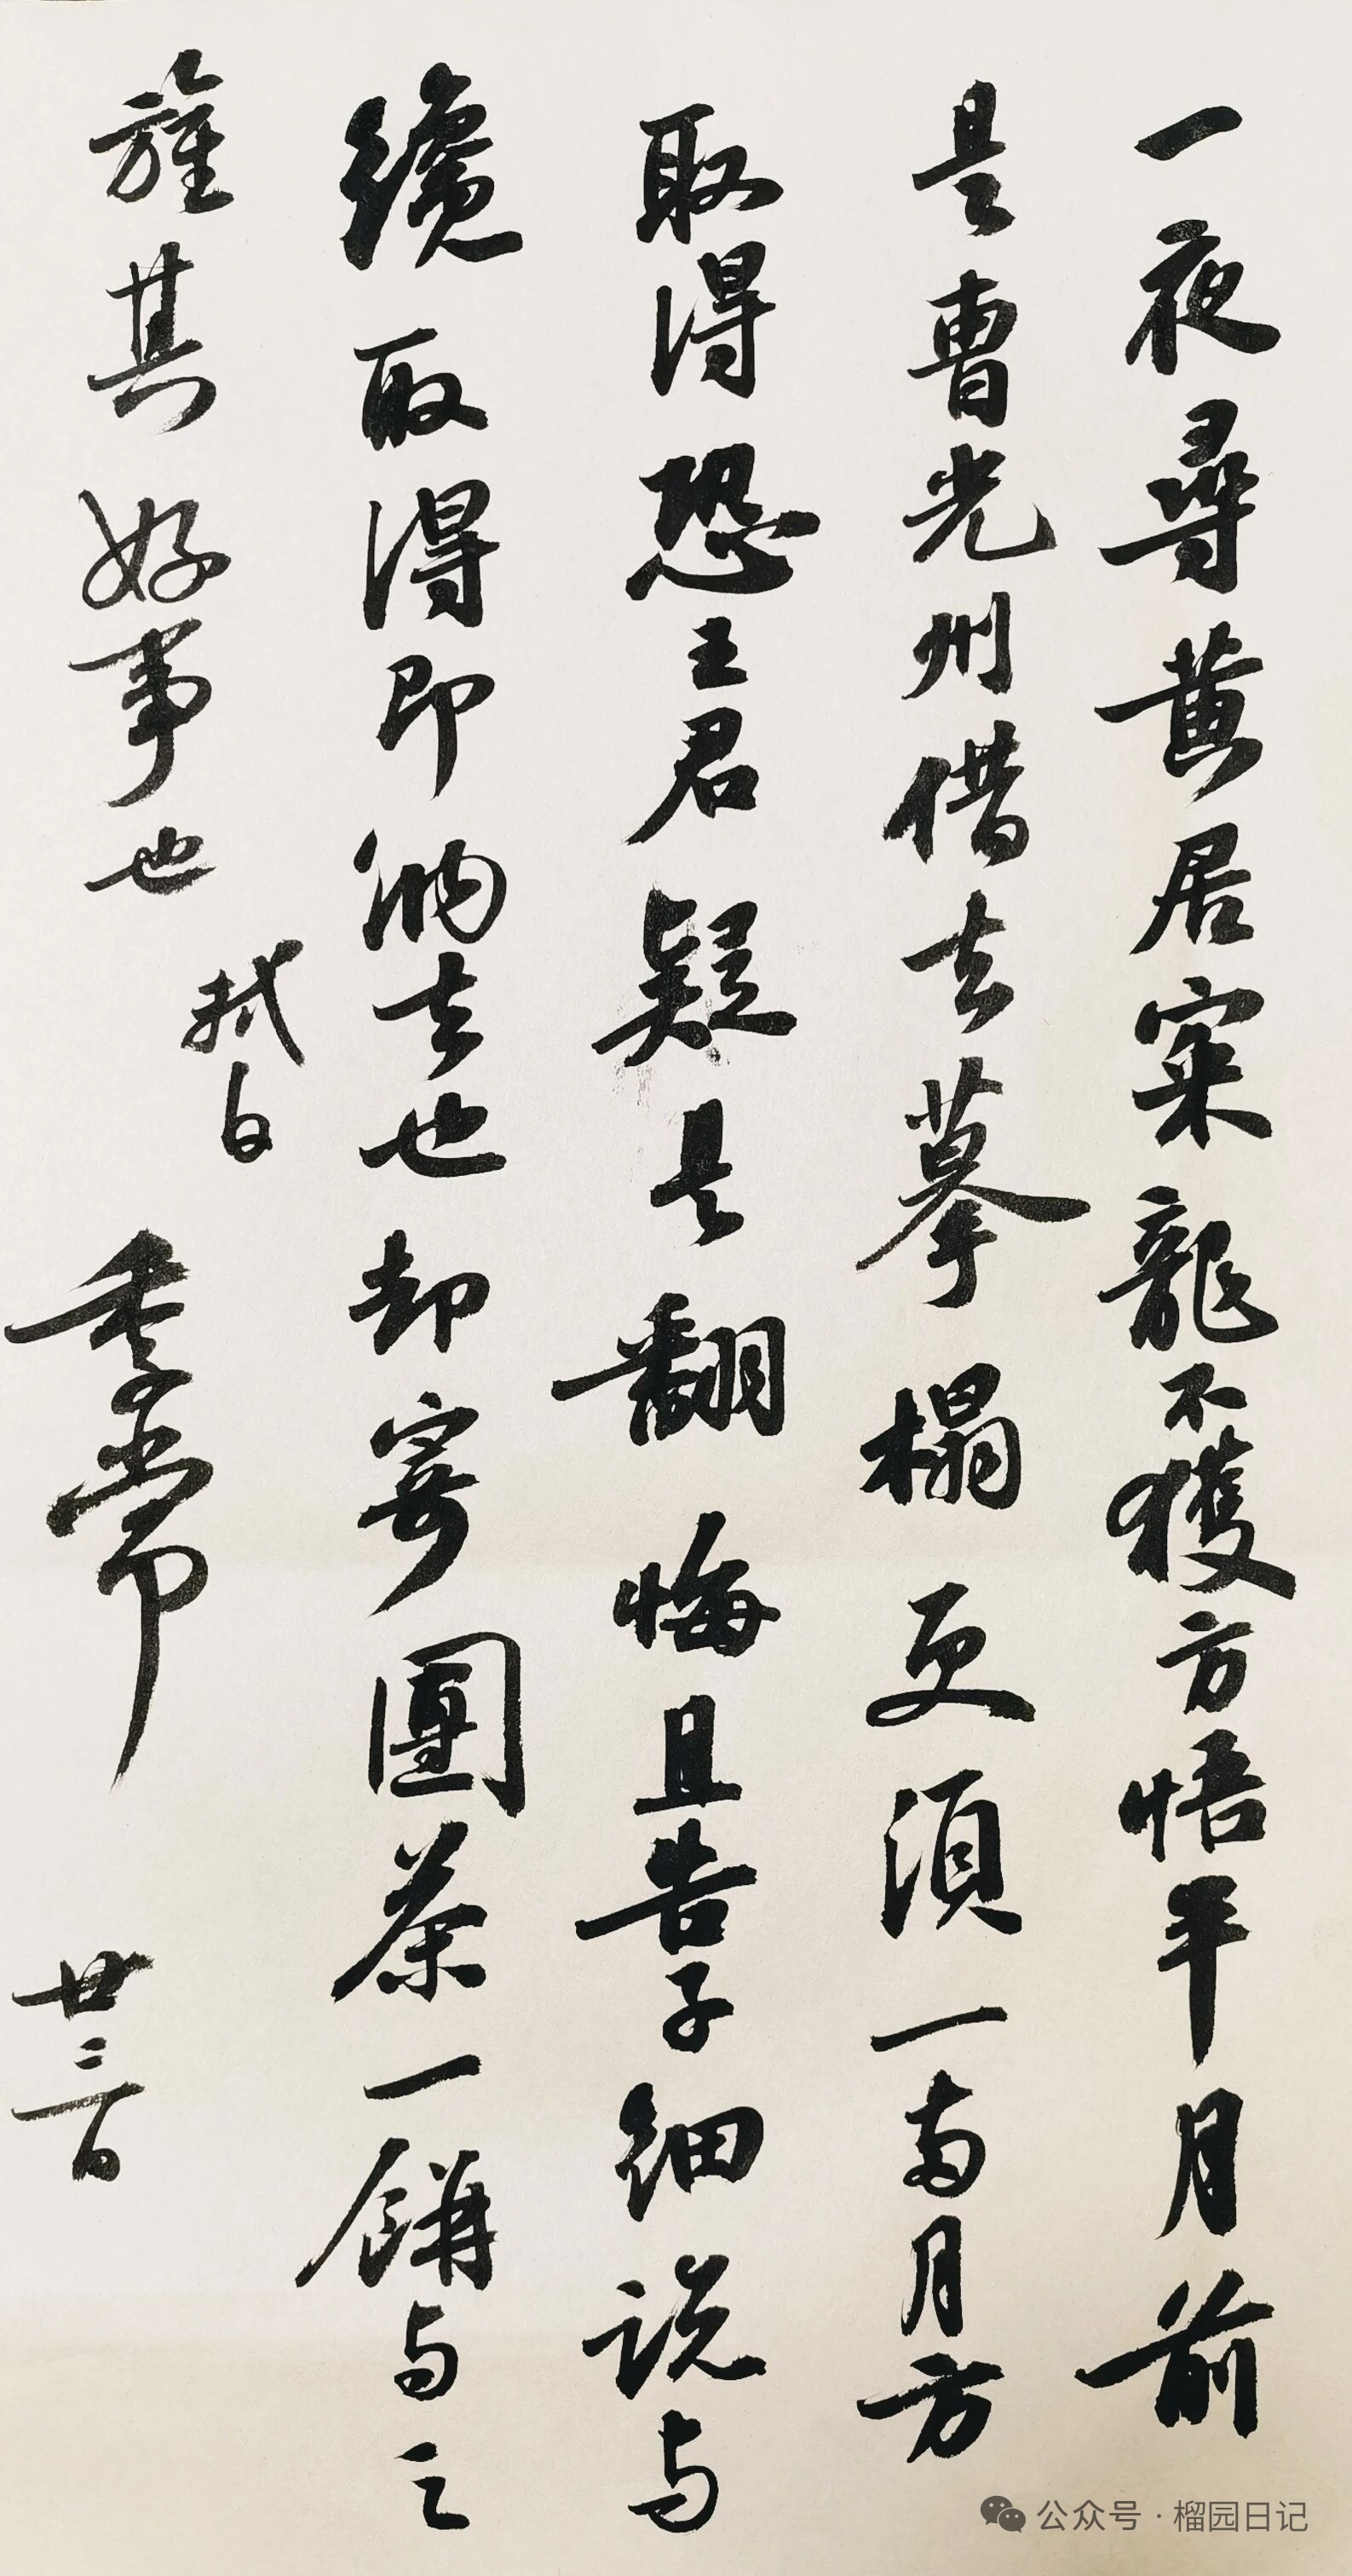 一夜尋黄居寀龍不獲方悟半月前
是曹光州借去摹榻更須一兩月方
取得恐王君疑是翻悔且告子細説与
纔取得即納去也却寄團茶一餅与之
旌其好事也
軾白
季常
廿三日
公众号·榴园日记